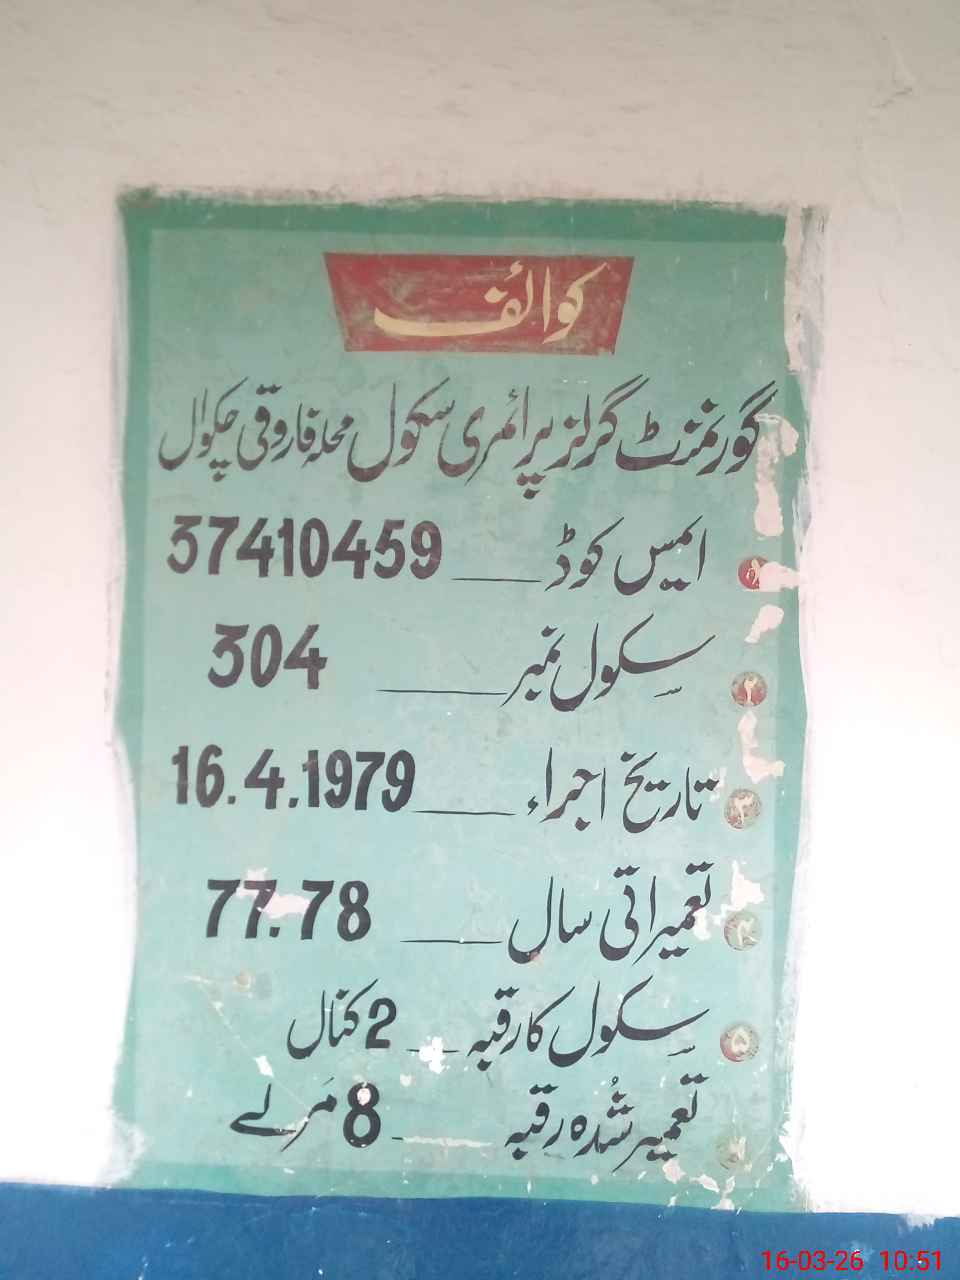 کوائف
گورنمنٹ گرلز پرائمری سکول محلہ فاروقی چکوال
۱ ایمس کوڈ ____ 37410459
۲ سکول نمبر ____ 304
۳ تاریخ اجراء ____ 16.4.1979
۴ تعمیراتی سال ____ 77.78
۵ سکول کا رقبہ __ 2 کنال
تعمیر شُدہ رقبہ ____ 8 مَرلے
16-03-26 10:51